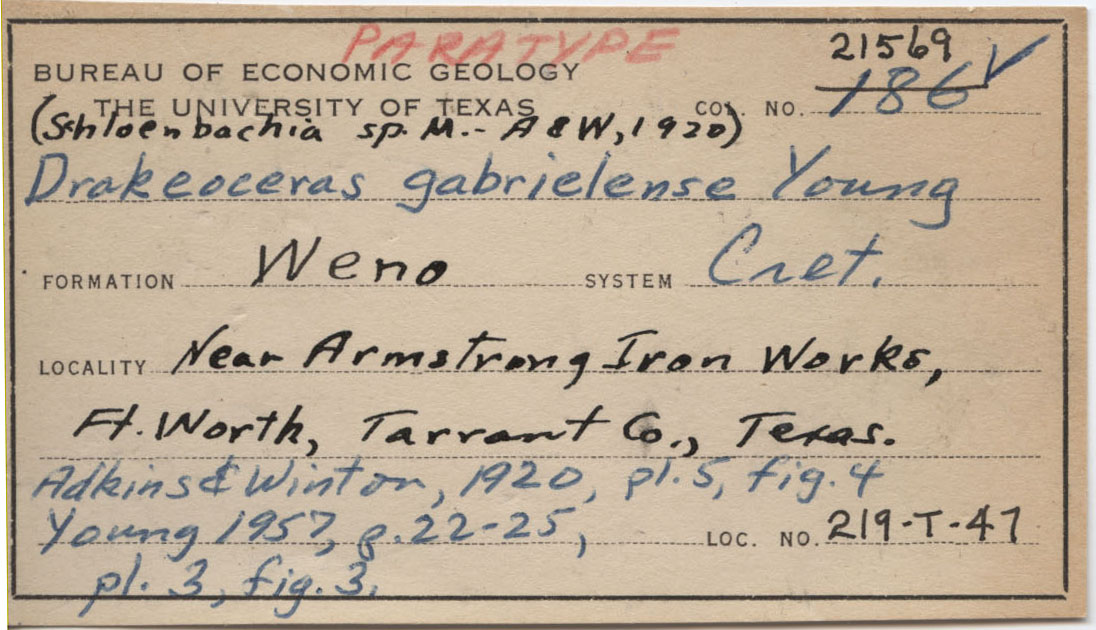 PARATYPE
21569
BUREAU OF ECONOMIC GEOLOGY
THE UNIVERSITY OF TEXAS COL. NO. 186 ✓
(Schloenbachia sp. M. - A & W, 1920)
Drakeoceras gabrielense Young
FORMATION Weno SYSTEM Cret.
LOCALITY Near Armstrong Iron Works,
Ft. Worth, Tarrant Co., Texas.
Adkins & Winton, 1920, pl. 5, fig. 4
Young 1957, p. 22-25, LOC. NO. 219-T-47
pl. 3, fig. 3.